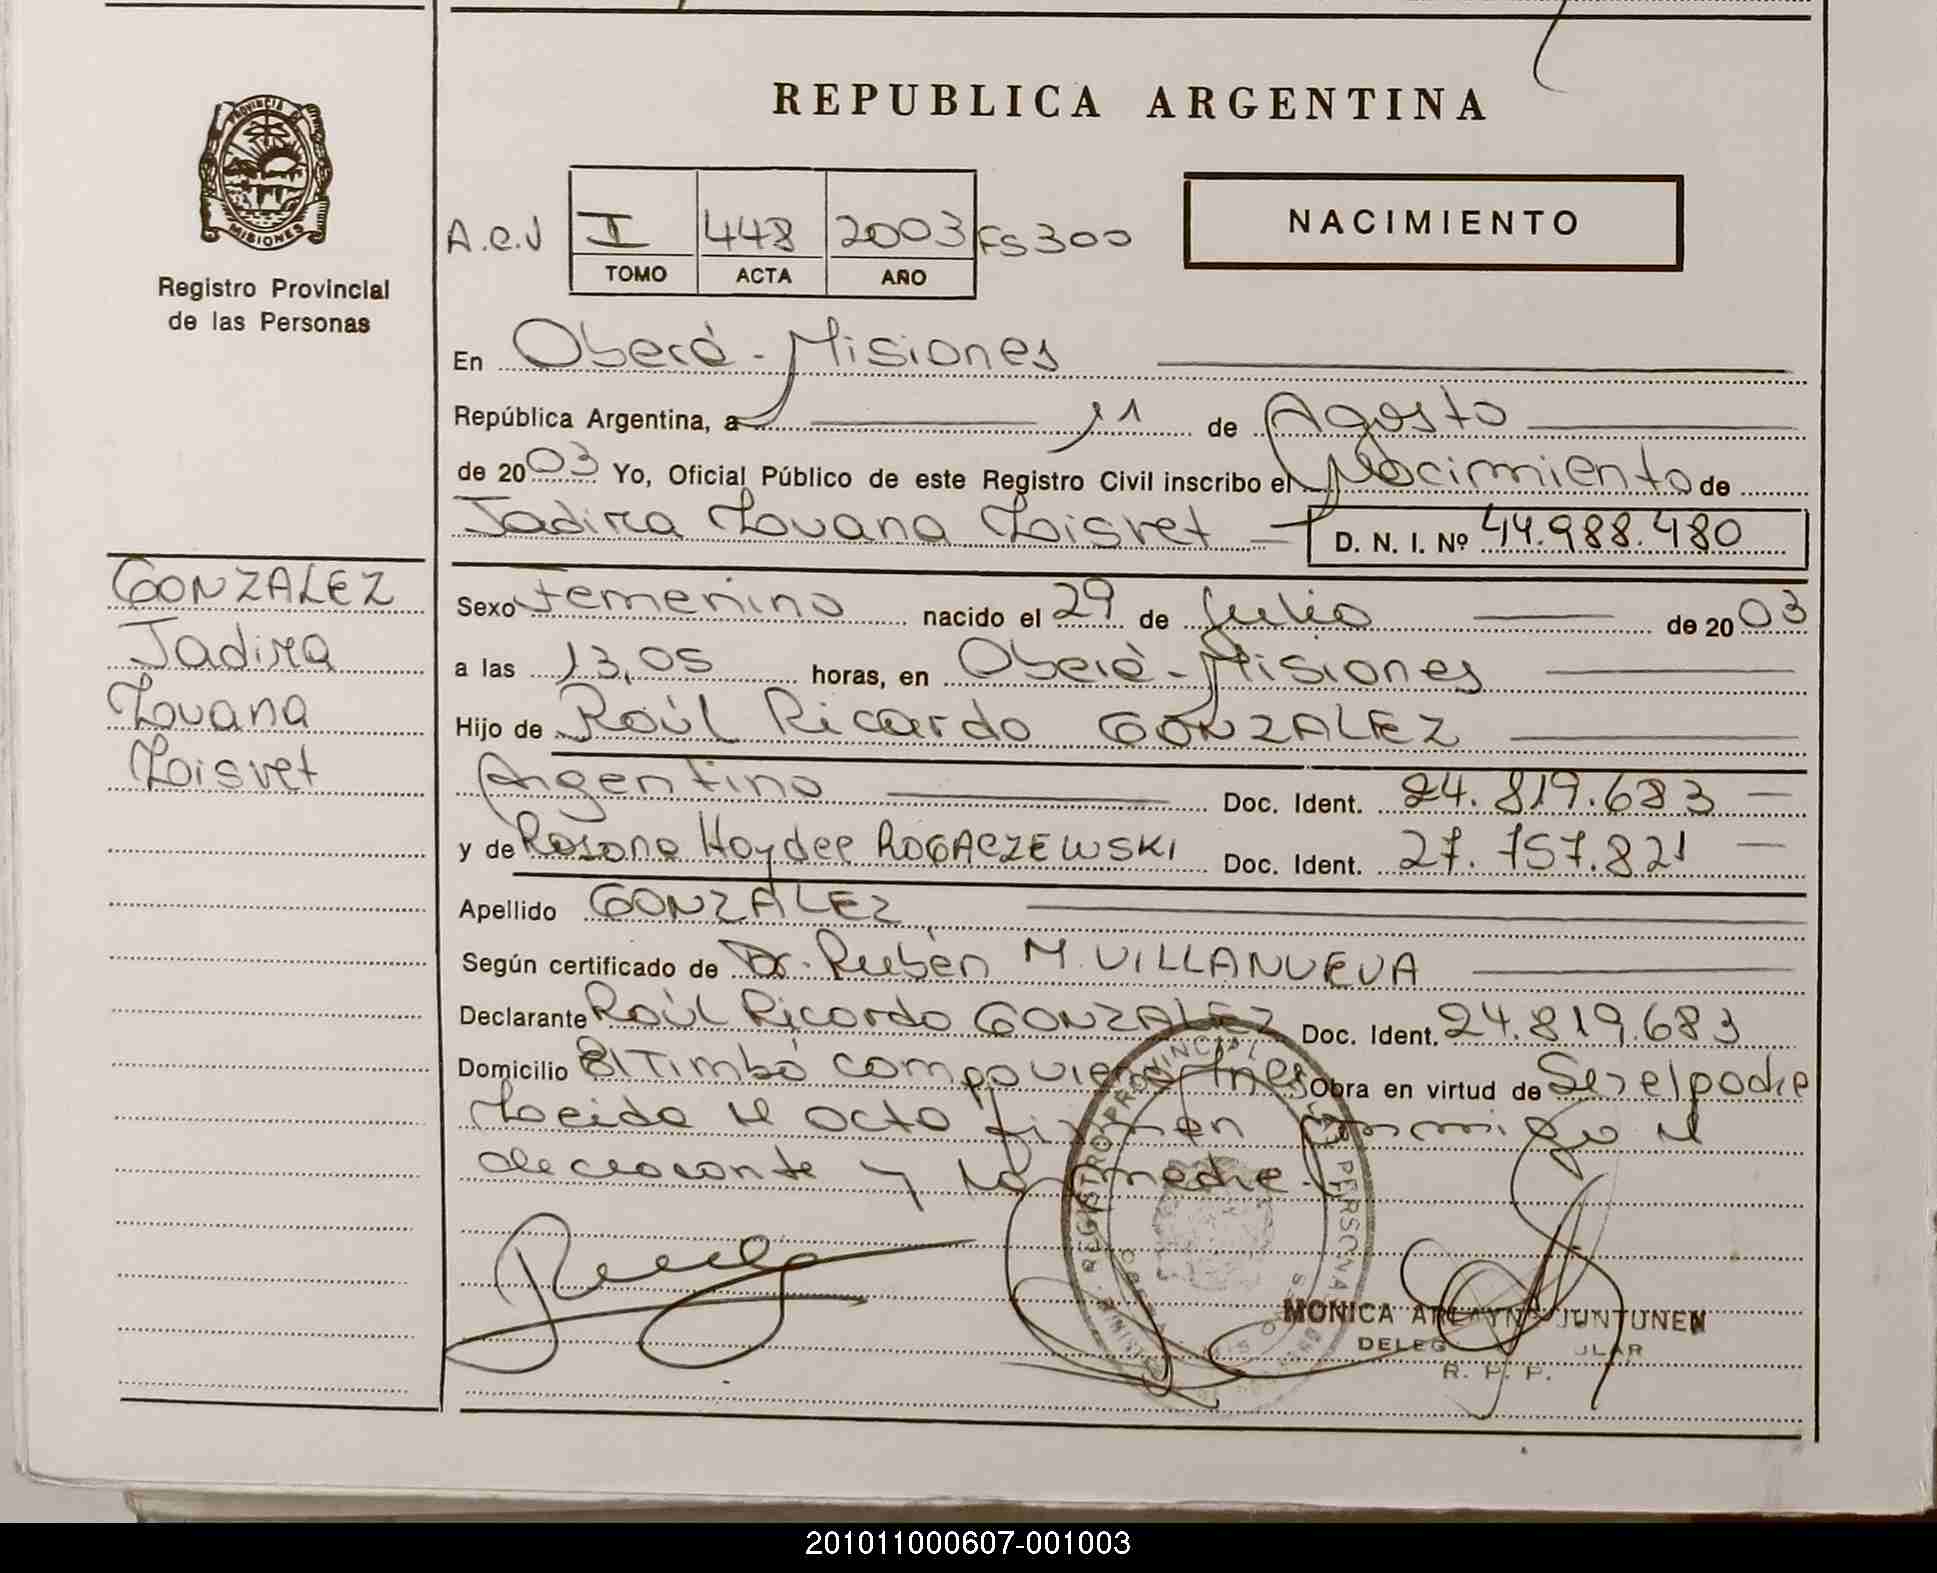 REPUBLICA ARGENTINA
PROVINCIA DE
MISIONES
Registro Provincial
de las Personas
A.C.V I 448 2003 FS 300
TOMO ACTA AÑO
NACIMIENTO
En Oberá - Misiones
República Argentina, a 11 de Agosto
de 2003 Yo, Oficial Público de este Registro Civil inscribo el Nacimiento de
Jadira Louana Loisvet D. N. I. Nº 44.988.480
GONZALEZ
Jadira
Louana
Loisvet
Sexo Femenino nacido el 29 de Julio de 2003
a las 13,05 horas, en Oberá - Misiones
Hijo de Raúl Ricardo GONZALEZ
Argentino Doc. Ident. 24.819.683
y de Rosana Haydee ROGACZEWSKI Doc. Ident. 27.757.821
Apellido GONZALEZ
Según certificado de Dr. Rubén M. VILLANUEVA
Declarante Raúl Ricardo GONZALEZ Doc. Ident. 24.819.683
Domicilio El Timbó Obra en virtud de Ser el padre
Leida el acta firman conmigo el
declarante y la madre.
REGISTRO PROVINCIAL
MONICA JUNTUNEN
R. P. P.
201011000607-001003